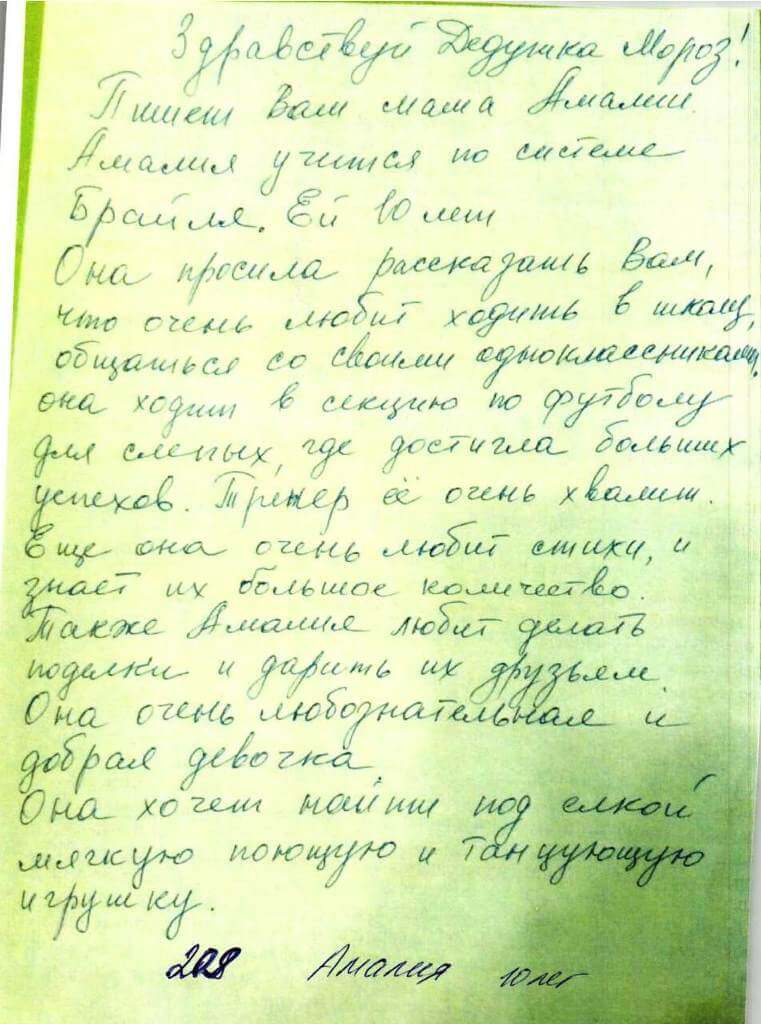 Здравствуй Дедушка Мороз!
Пишет Вам мама Амалии.
Амалия учится по системе
Брайля. Ей 10 лет
Она просила рассказать Вам,
что очень любит ходить в школу,
общаться со своими одноклассниками,
она ходит в секцию по футболу
для слепых, где достигла больших
успехов. Тренер её очень хвалит.
Еще она очень любит стихи, и
знает их большое количество.
Также Амалия любит делать
поделки и дарить их друзьям.
Она очень любознательная и
добрая девочка.
Она хочет найти под елкой
мягкую поющую и танцующую
игрушку.
208 Амалия 10 лет